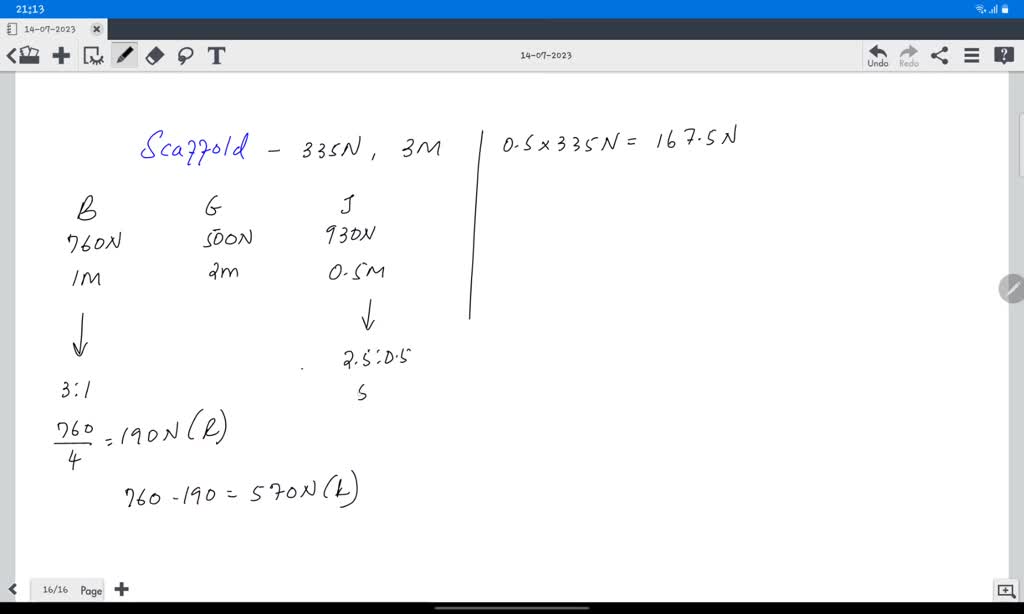 21:13
14-07-2023
14-07-2023
Undo
Redo
Scaffold - 335N, 3M
0.5 x 335N = 167.5N
B G J
760N 500N 930N
1M 2m 0.5M
↓ ↓
3:1 2.5:0.5
5
760/4 = 190N (R)
760 - 190 = 570N (L)
16/16 Page